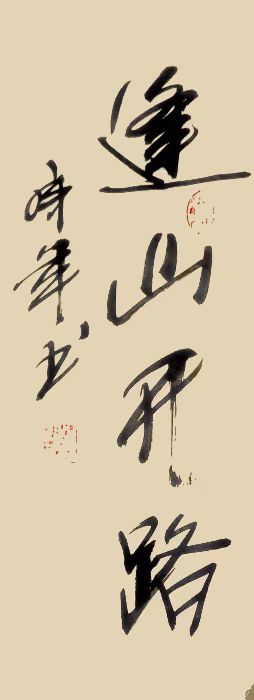 逢山开路
年书